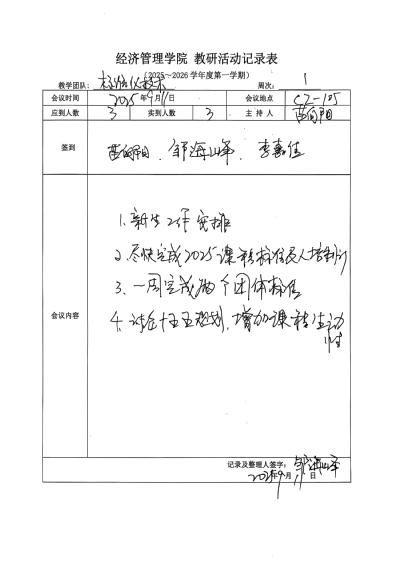 经济管理学院 教研活动记录表
（2025~2026学年度第一学期）
教学团队：标准化技术 周次：1
会议时间 2025年9月11日 会议地点 C2-105
应到人数 3 实到人数 3 主持人 苗向阳
签到 苗向阳、邹海峰、李嘉佳
会议内容
1、新生工作安排
2、尽快完成2025课程标准及人培制订
3、一周完成两个团体标准
4、讨论十五五规划，增加课程生动性
记录及整理人签字：邹海峰
2025年9月11日